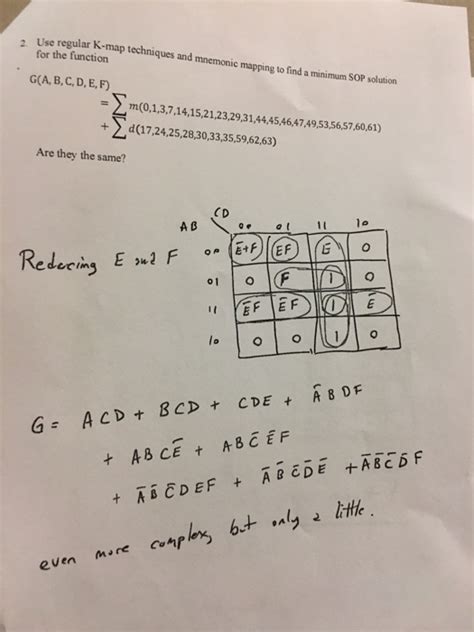 2. Use regular K-map techniques and mnemonic mapping to find a minimum SOP solution
for the function
G(A, B, C, D, E, F)
= ∑ m(0,1,3,7,14,15,21,23,29,31,44,45,46,47,49,53,56,57,60,61)
+ ∑ d(17,24,25,28,30,33,35,59,62,63)
Are they the same?
CD
AB 00 01 11 10
Reducing E and F
00 E̅+F EF E 0
01 0 F 1 0
11 E̅F E̅F 1 E̅
10 0 0 1 0
G = ACD + BCD + CDE + A̅BDF
+ ABCE̅ + ABC̅E̅F
+ A̅B̅C̅DEF + A̅B̅C̅D̅E̅ + A̅B̅C̅D̅F
even more complex, but only a little.